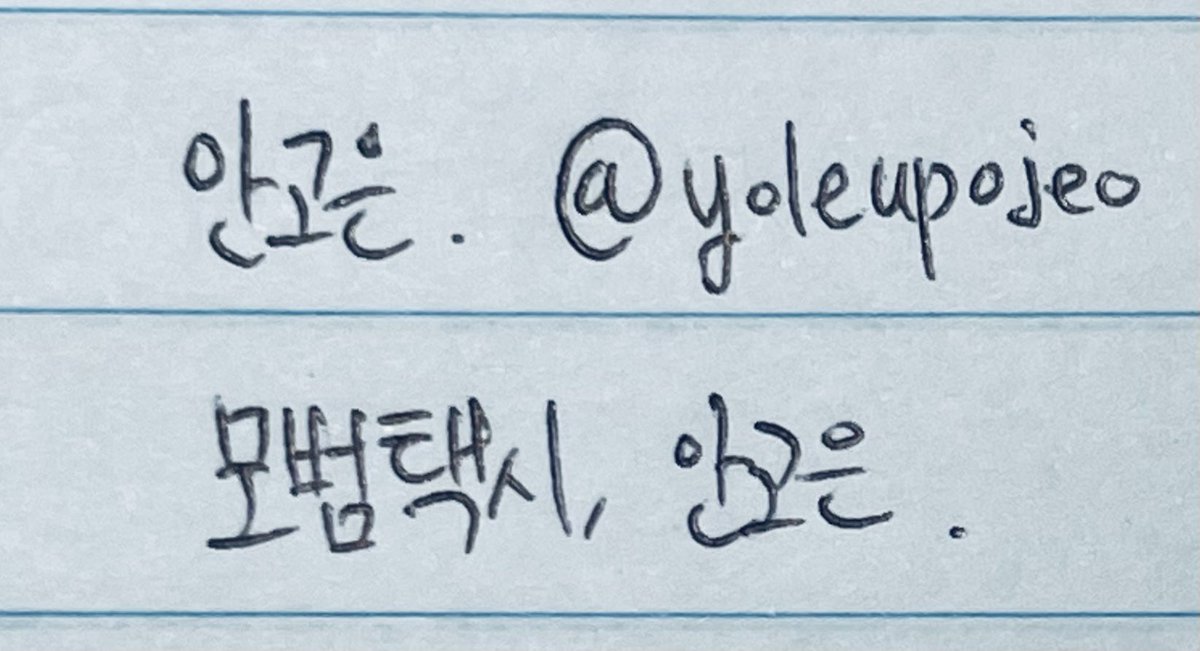 안고은. @yoleupojeo
모범택시, 안고은.